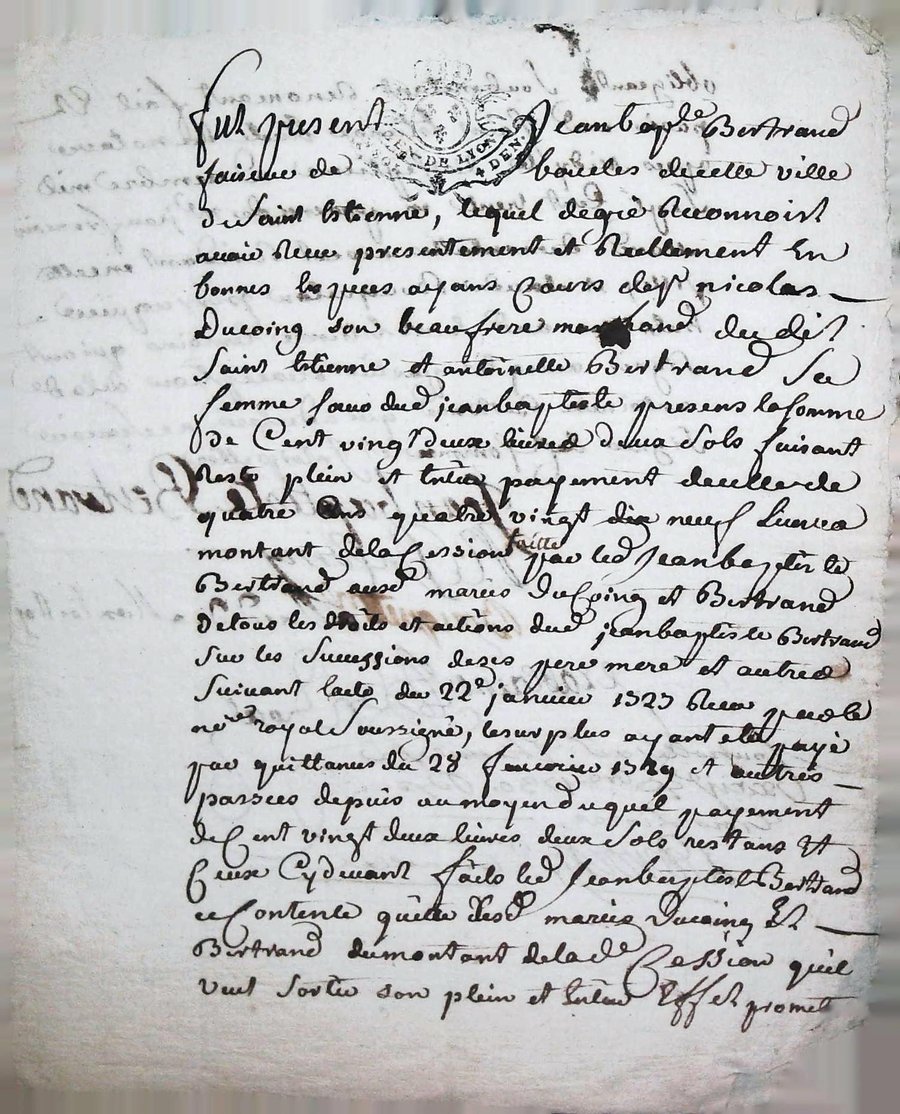 fut present Jeanbap.te Bertrand
faiseur de boucles decette ville
GEN. DE LYON
4 DEN.
de Saint Etienne, lequel degré Reconnoist
avoir Receu presentement et Reellement En
bonnes Especes ayans Cours de Sr nicolas
Ducoing son beaufrere marchand du dit
Saint Etienne et antoinette Bertrand Sa
femme sœur dud. jeanbaptiste presens la somme
De Cent vingt deux livres deux Sols faisant
Reste plein et Entier payement decelle de
quatre Cens quatre vingt dix neuf Livres
montant dela Cession faitte par led. Jeanbaptiste
Bertrand ausd. mariés Ducoing et Bertrand
De tous les droits et actions dud. jeanbaptiste Bertrand
Sur les Successions deses pere mere et autres
Suivant lacte du 22e janvier 1727 Receu par le
nore royal Soussigné, le surplus ayant eté payé
par quittances du 28 1729 et autres
passées depuis au moyen duquel payement
de Cent vingt deux livres deux Sols restans Et
Ceux Cydevant faits led. Jeanbaptiste Bertrand
ce Contente quitte lesd. mariés Ducoing Et
Bertrand du montant delad.e Cession quil
veut Sortir son plein et Entier Effet promet